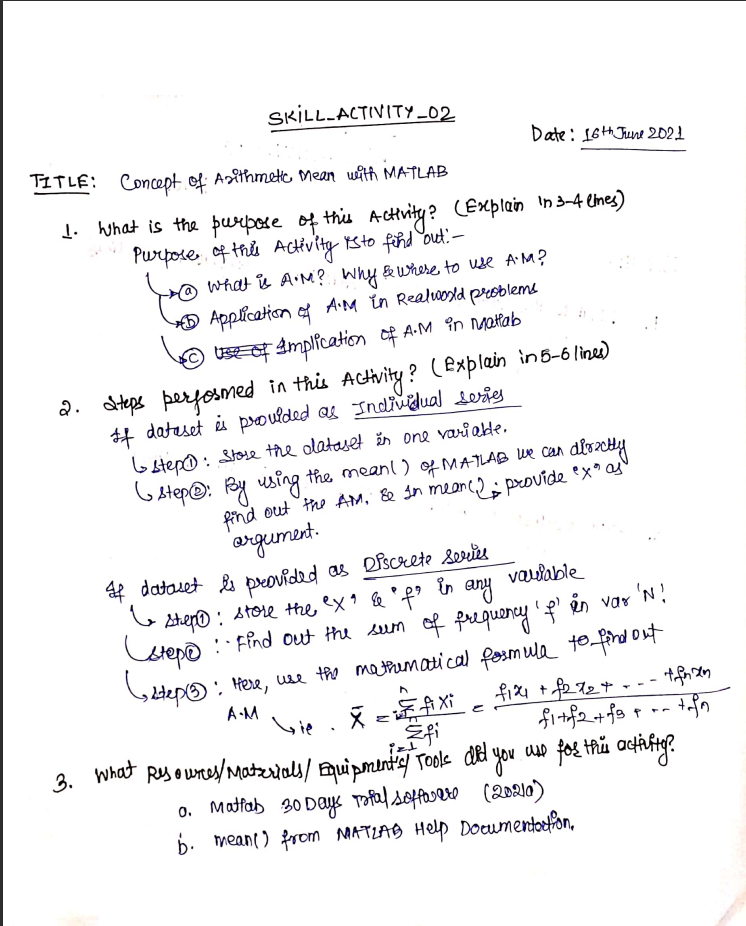 SKILL_ACTIVITY_02
Date: 16th June 2021
TITLE: Concept of Arithmetic Mean with MATLAB
1. What is the purpose of this Activity? (Explain in 3-4 lines)
Purpose of this Activity is to find out:-
(a) What is A.M? Why & where to use A.M?
(b) Application of A.M in Realworld problems
(c) Use of Implication of A.M in Matlab
2. Steps performed in this Activity? (Explain in 5-6 lines)
If dataset is provided as Individual series
Step①: Store the dataset in one variable.
Step②: By using the mean() of MATLAB we can directly
find out the AM. & In mean(); provide "x" as
argument.
If dataset is provided as Discrete Series
Step①: Store the "x" & "f" in any variable
Step②: Find out the sum of frequency 'f' in var 'N'
Step③: Here, use the mathematical formula to find out
A.M
ie. X̄ = Σ(i=1 to n) fi Xi / Σ(i=1) fi = f1x1 + f2x2 + --- + fnxn / f1+f2+f3+--+fn
3. What Resources/Materials/Equipment's/Tools did you use for this activity?
a. Matlab 30 Days Trial software (2021a)
b. mean() from MATLAB Help Documentation.